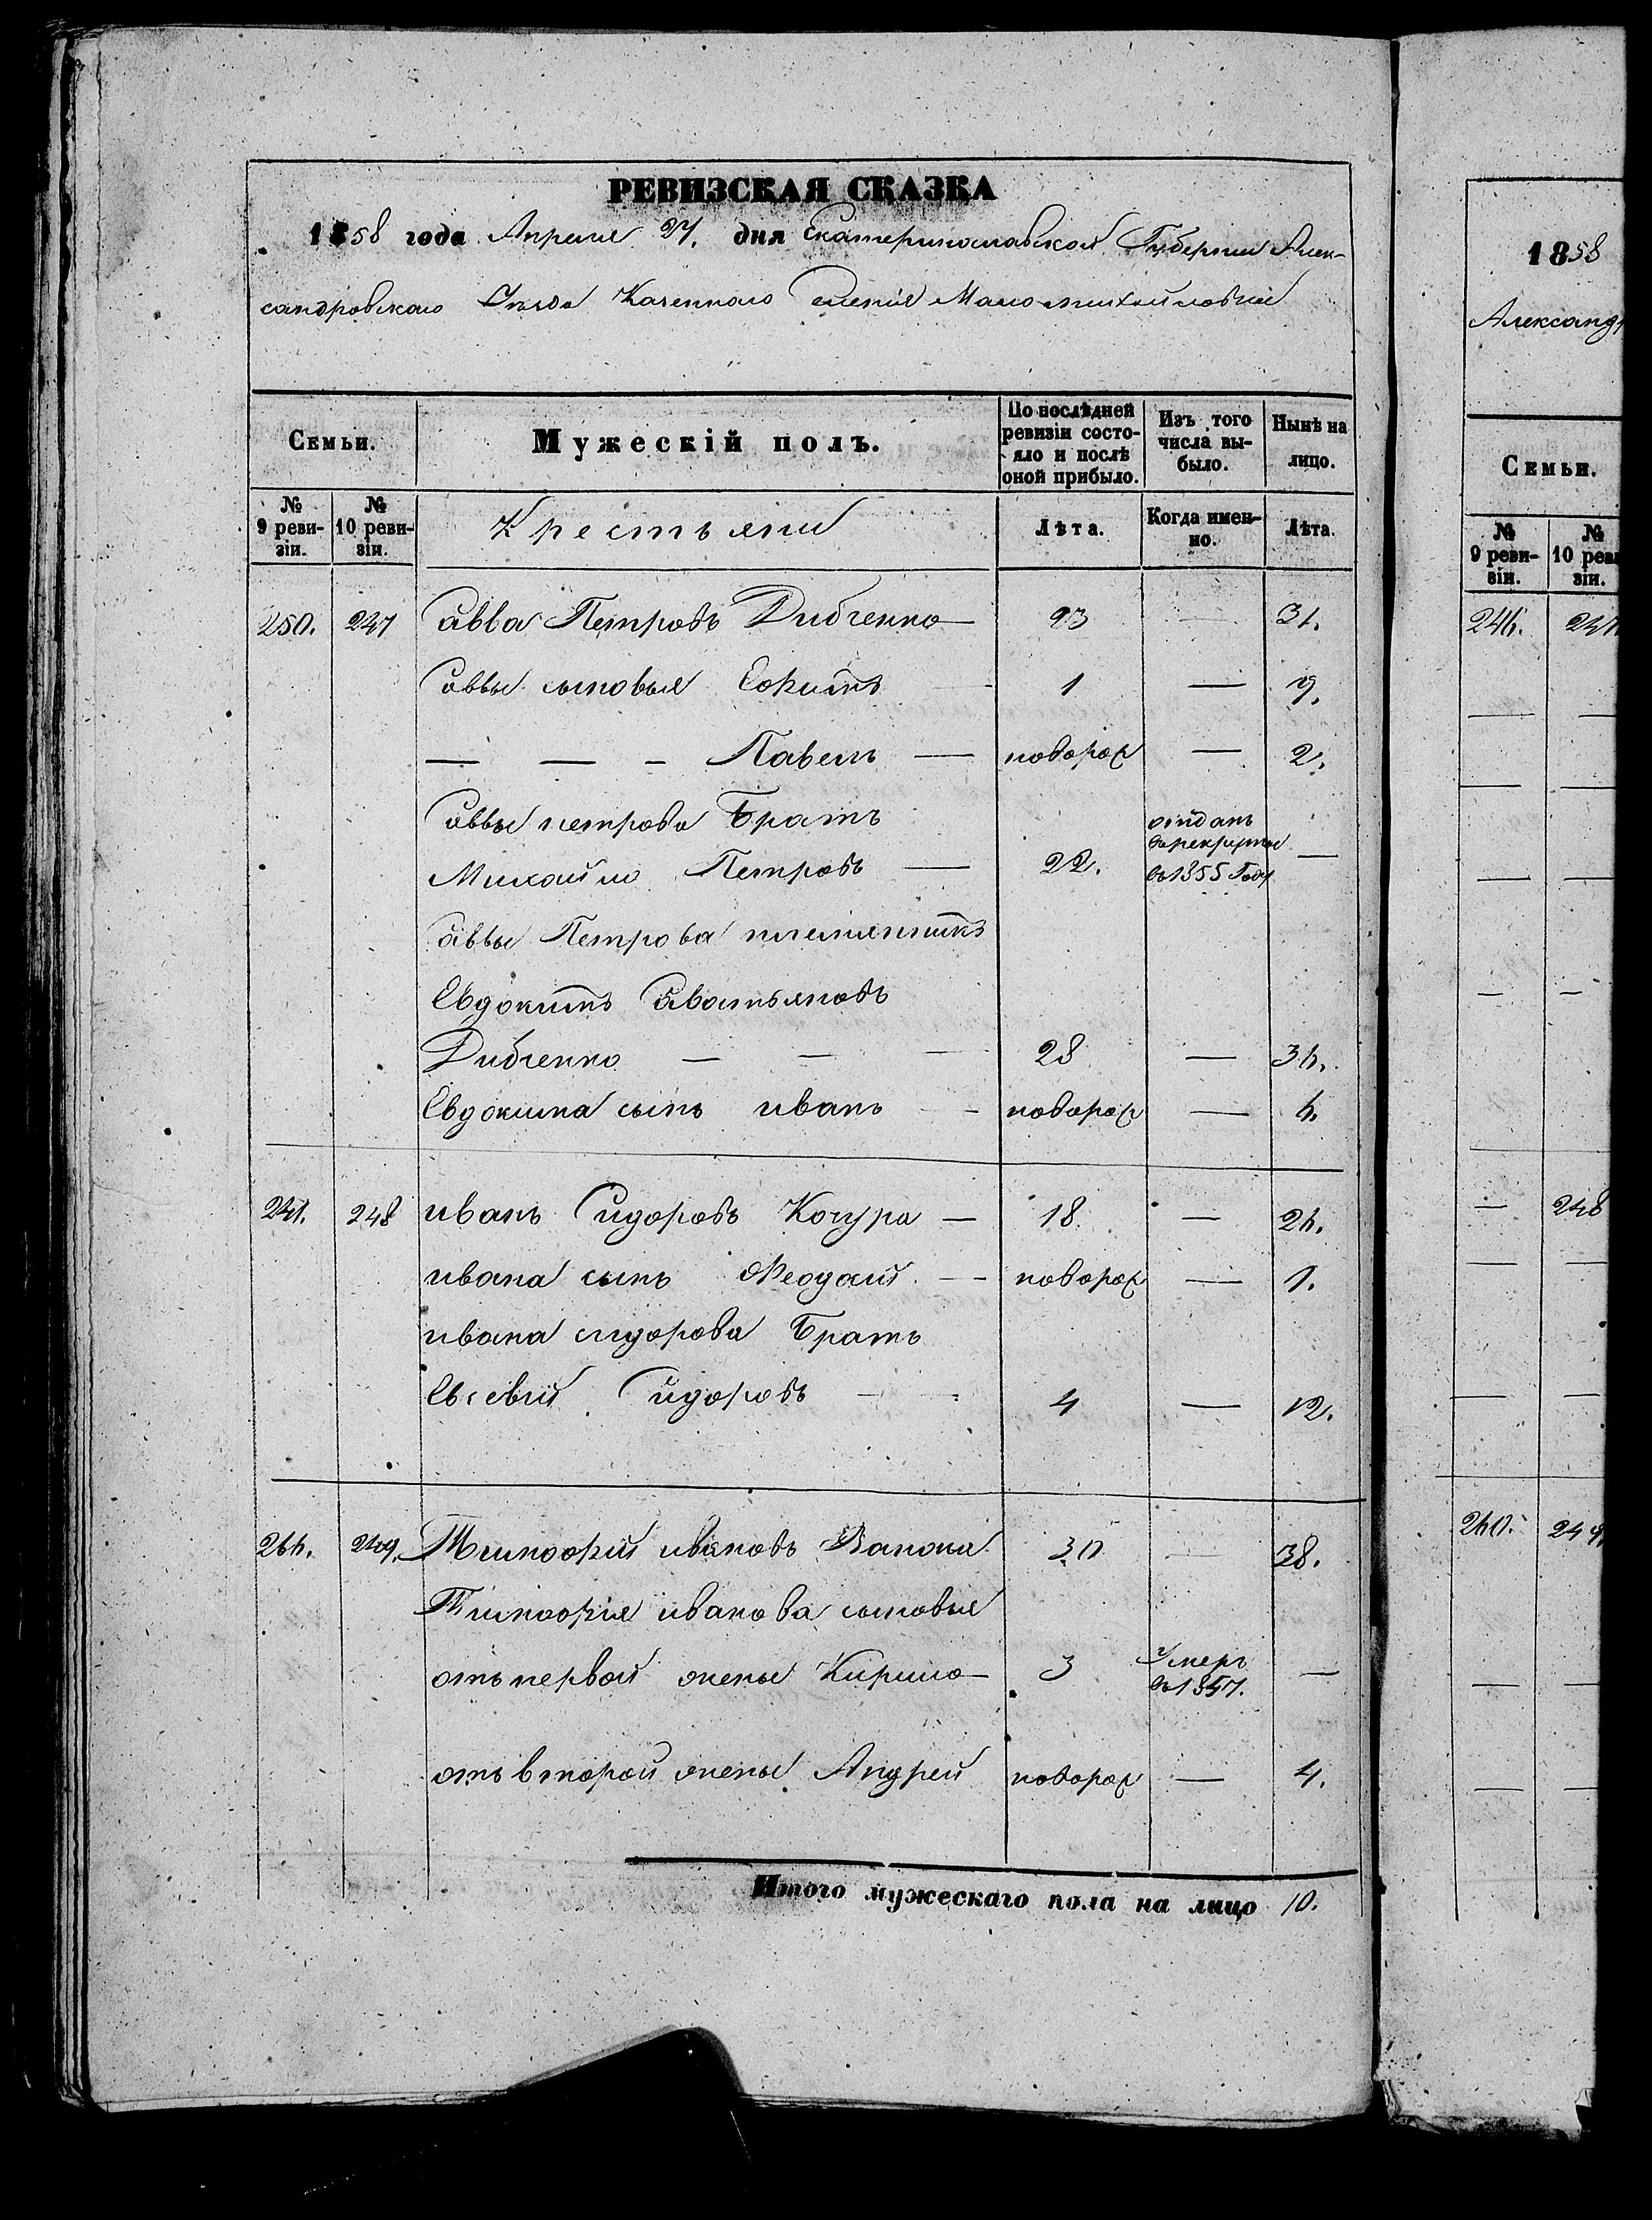 РЕВИЗСКАЯ СКАЗКА
1858 года Апреля 27. дня Екатеринославской Губернии Алек-
сандровского Уезда Казенного Селенія Маломихайловки
Семьи. Мужескій полъ. По послѣдней ревизіи состо-яло и послѣ оной прибыло. Изъ того числа вы-было. Нынѣ на лицо.
№ 9 реви-зіи. № 10 реви-зіи. Крестьяни Лѣта. Когда имен-но. Лѣта.
250. 247 Савва Петровъ Дибченко — 23 — 31.
Саввы сыновья Ефимъ — 1 — 9.
— — – Павелъ — новорож — 2.
Саввы петрова Братъ
Михайло Петровъ — 22. отданъ в рекруты въ 1855 Году —
Саввы Петрова племянникъ
Евдокимъ Саватьяновъ
Дибченко — — — 28 — 36.
Евдокима сынъ иванъ — новорож — 6.
241. 248 иванъ Сидоровъ Кочура — 18 — 26.
ивана сынъ Феодосій — новорож — 1.
ивана сидорова Братъ
Евсевій Сидоровъ — 4 — 12.
264. 249. Тимофей ивановъ 30 — 38.
Тимофія иванова сыновья
отъ первой жены Кирило — 3 умеръ въ 1857. —
отъ второй жены Андрей новорож — 4.
Итого мужескаго пола на лицо 10.
1858
Александр
Семьи.
№ 9 реви-зіи. № 10 реви-зіи.
246. 247
— —
— —
— —
— —
— —
— 248
— —
— —
260. 249.
— —
— —